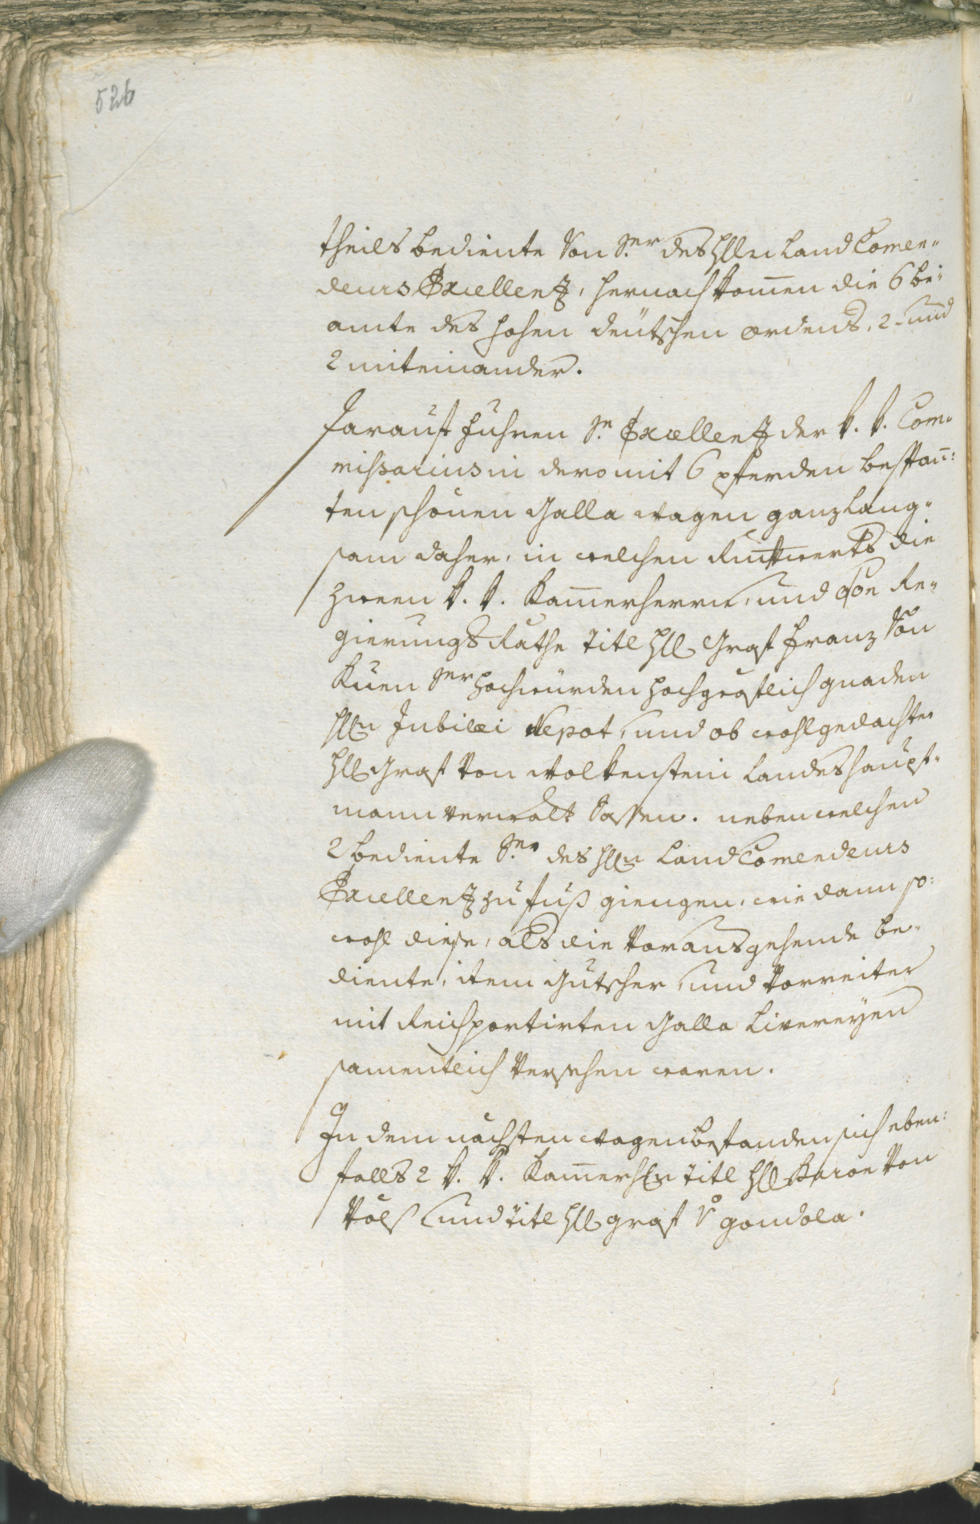 526
theils bediente Von Sr. des Hllen Land Comen¬
deurs Excellenz, hernach komen die 6 be¬
amte des hohen deutschen ordens, 2. und
2 miteinander.
Darauf fuhren Se. Excellenz der k. k. Com¬
missarius in dero mit 6 pferden bespan̄¬
ten schönen Galla wagen ganz lang¬
sam daher, in welchen Ruckwerts die
zween k. k. Kam̄erherren, und Re¬
gierungs Räthe Titl Hl. Graf Franz Von
Kuen Sr. hochwürden hochgräflich gnaden
Hln Jubilæi Nepot, und ob wohlgedachter
Hl. Graf von Wolkenstein Landeshaupt¬
mann verwalt Saßen. neben welchen
2 bediente Sr. des Hln Land Comendeurs
Excellenz zu fuß giengen, wie dann so¬
wohl diese, als die Vorausgehende be¬
diente, item Gutscher und Vorreiter
mit Reich portirten Galla Livereyen
samentlich Versehen waren.
In dem nächsten wagen befanden sich eben¬
falls 2 k. k. Kam̄erhln Titl Hl. Baron von
Völs und Titl Hl. graf Vo gondola.